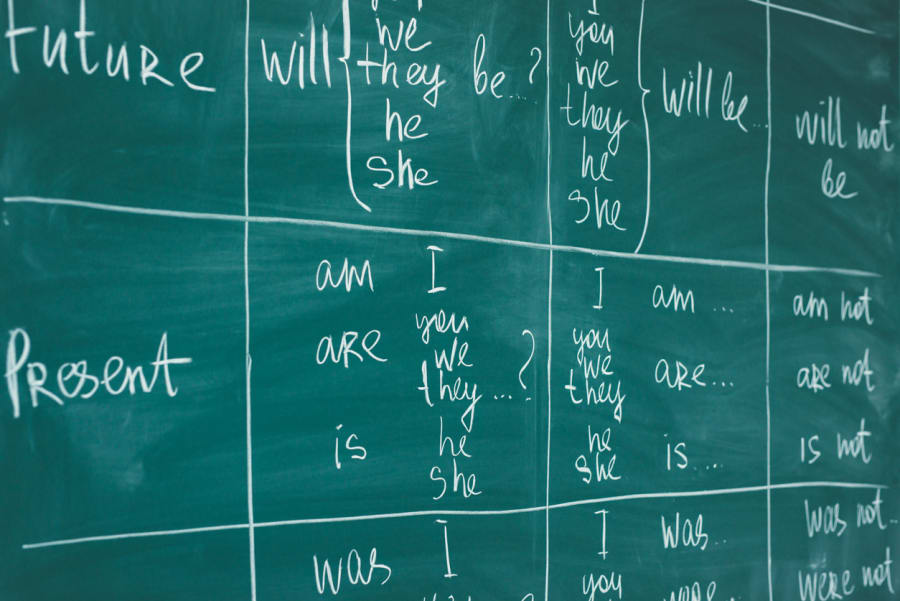 Future
will
we
they
he
she
be....?
I
you
we
they
he
she
will be...
will not
be
Present
am I
are you
we
they...?
is he
she
I am ...
you
we
they
are...
he
she
is....
am not
are not
is not
was I
I was..
you
was not..
were not